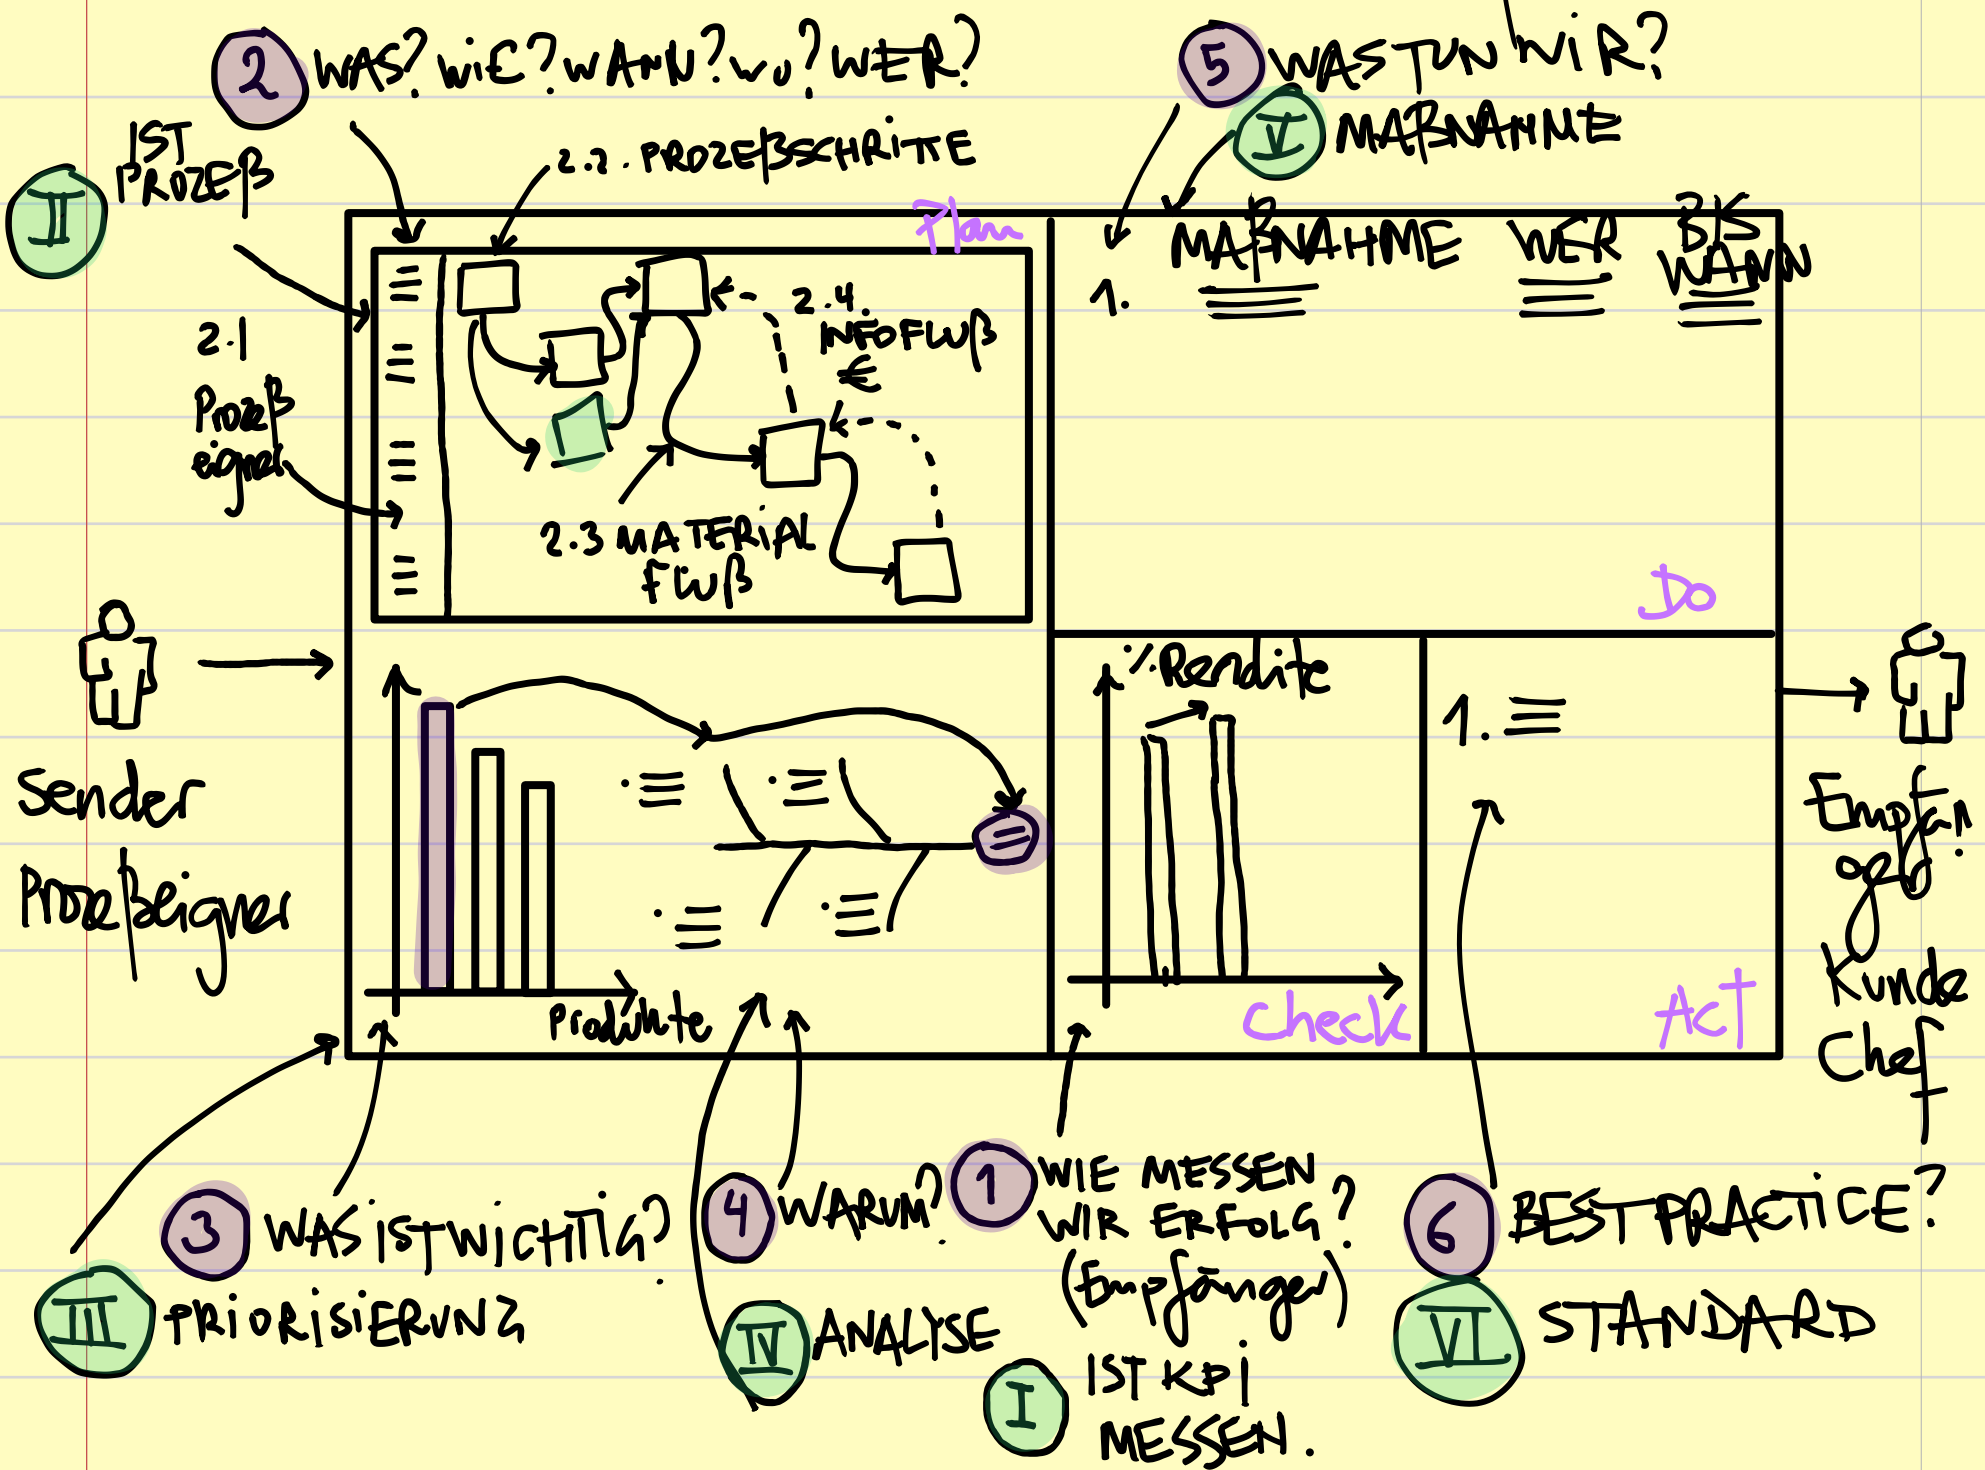 2 WAS? WIE? WANN? WO? WER?
5 WAS TUN WIR?
V MAßNAHME
II IST
PROZEß
2.2. PROZEßSCHRITTE
Plan
MAßNAHME WER BIS
WANN
1.
2.4
INFOFLUß
2.1
Prozeß
eigner
2.3 MATERIAL
FLUß
Do
Sender
Prozeßeigner
Produkte
% Rendite
Check
1.
Act
Empfän
ger
Kunde
Chef
3 WAS IST WICHTIG?
III PRIORISIERUNG
4 WARUM?
IV ANALYSE
1 WIE MESSEN
WIR ERFOLG?
(Empfänger)
I IST KPI
MESSEN.
6 BEST PRACTICE?
VI STANDARD